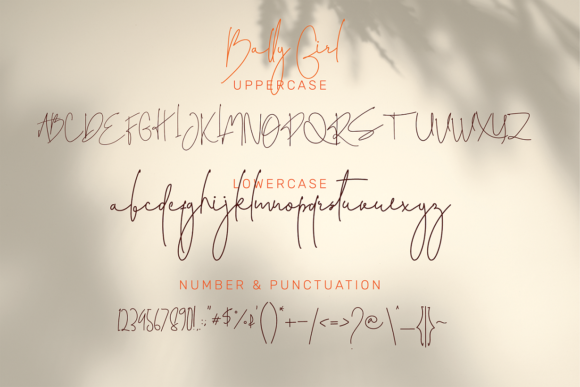 Bally Girl
UPPERCASE
ABCDEFGHIJKLMNOPQRSTUVWXYZ
LOWERCASE
abcdefghijklmnopqrstuvwxyz
NUMBER & PUNCTUATION
1234567890!..:;"#$%&'()*+-/<=>?@\^_{|}~